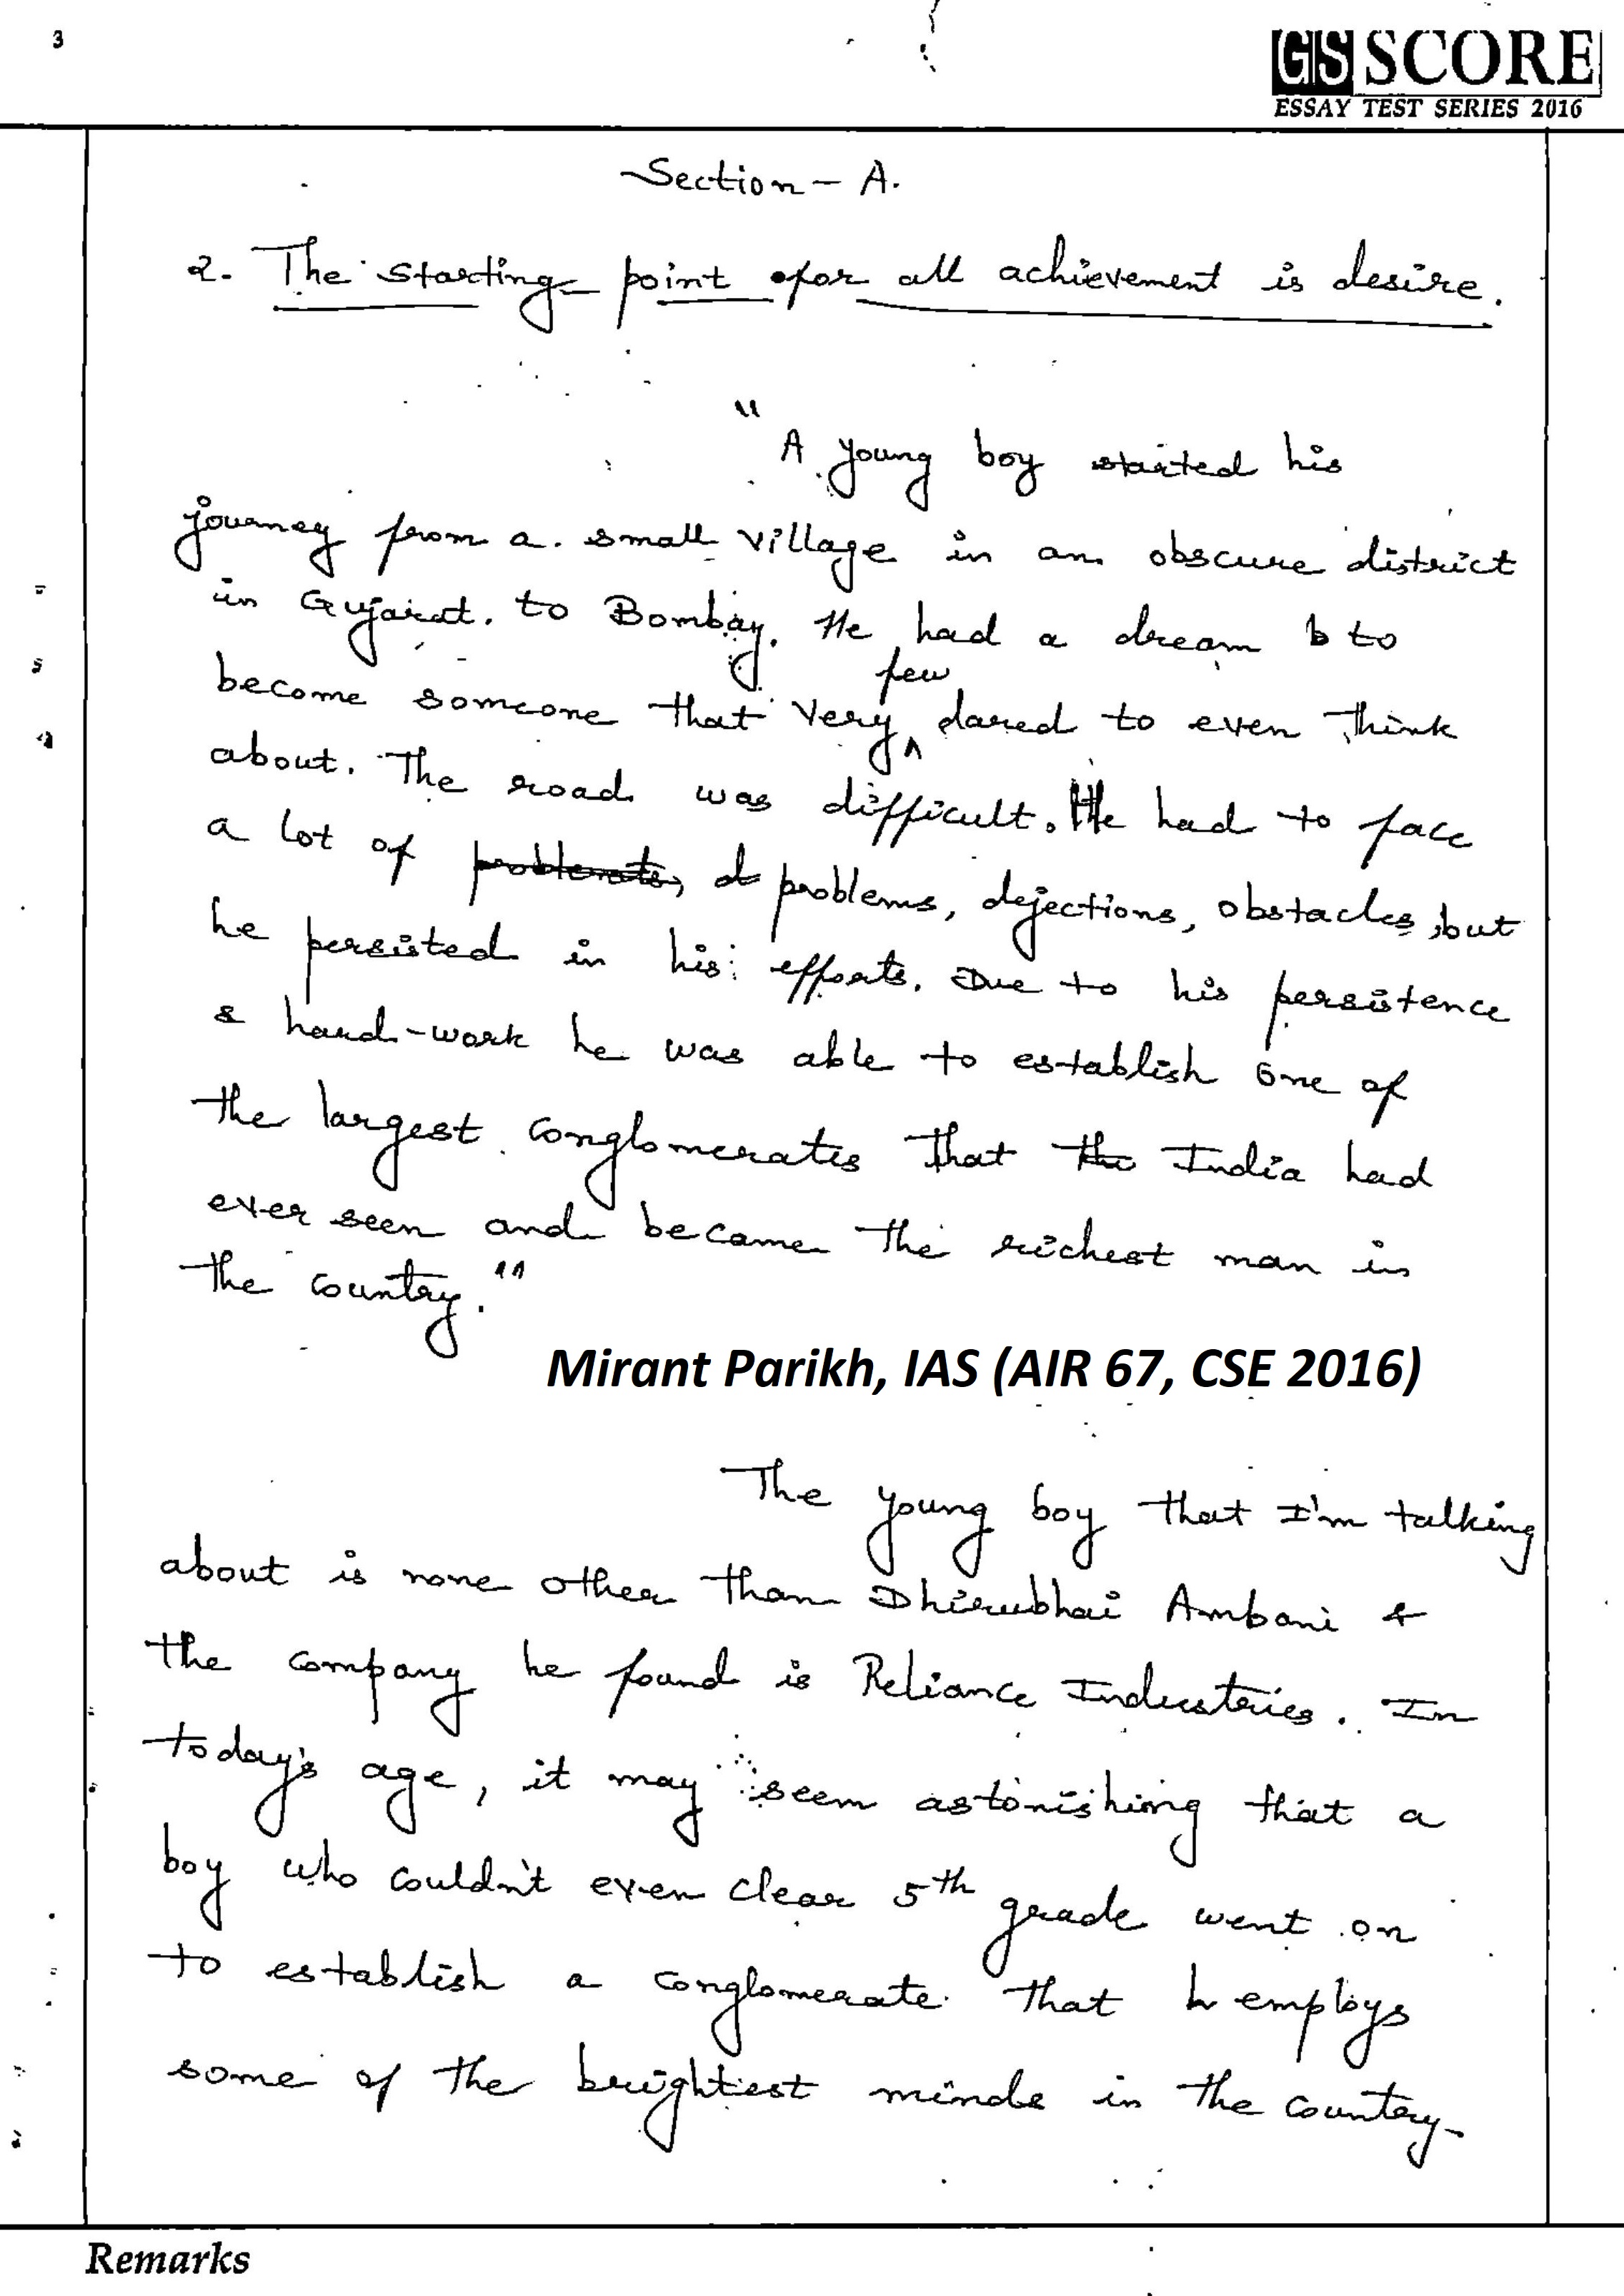 3
GS SCORE
ESSAY TEST SERIES 2016
Section - A.
2. The starting point for all achievement is desire.
"A young boy started his
journey from a small village in an obscure district
in Gujarat to Bombay. He had a dream to
become someone that very few dared to even think
about. The road was difficult. He had to face
a lot of problems, dejections, obstacles, but
he persisted in his efforts. Due to his persistence
& hard-work he was able to establish one of
the largest conglomerates that India had
ever seen and became the richest man in
the country."
Mirant Parikh, IAS (AIR 67, CSE 2016)
The young boy that I'm talking
about is none other than Dhirubhai Ambani &
the company he found is Reliance Industries. In
today's age, it may seem astonishing that a
boy who couldn't even clear 5th grade went on
to establish a conglomerate that employs
some of the brightest minds in the country.
Remarks